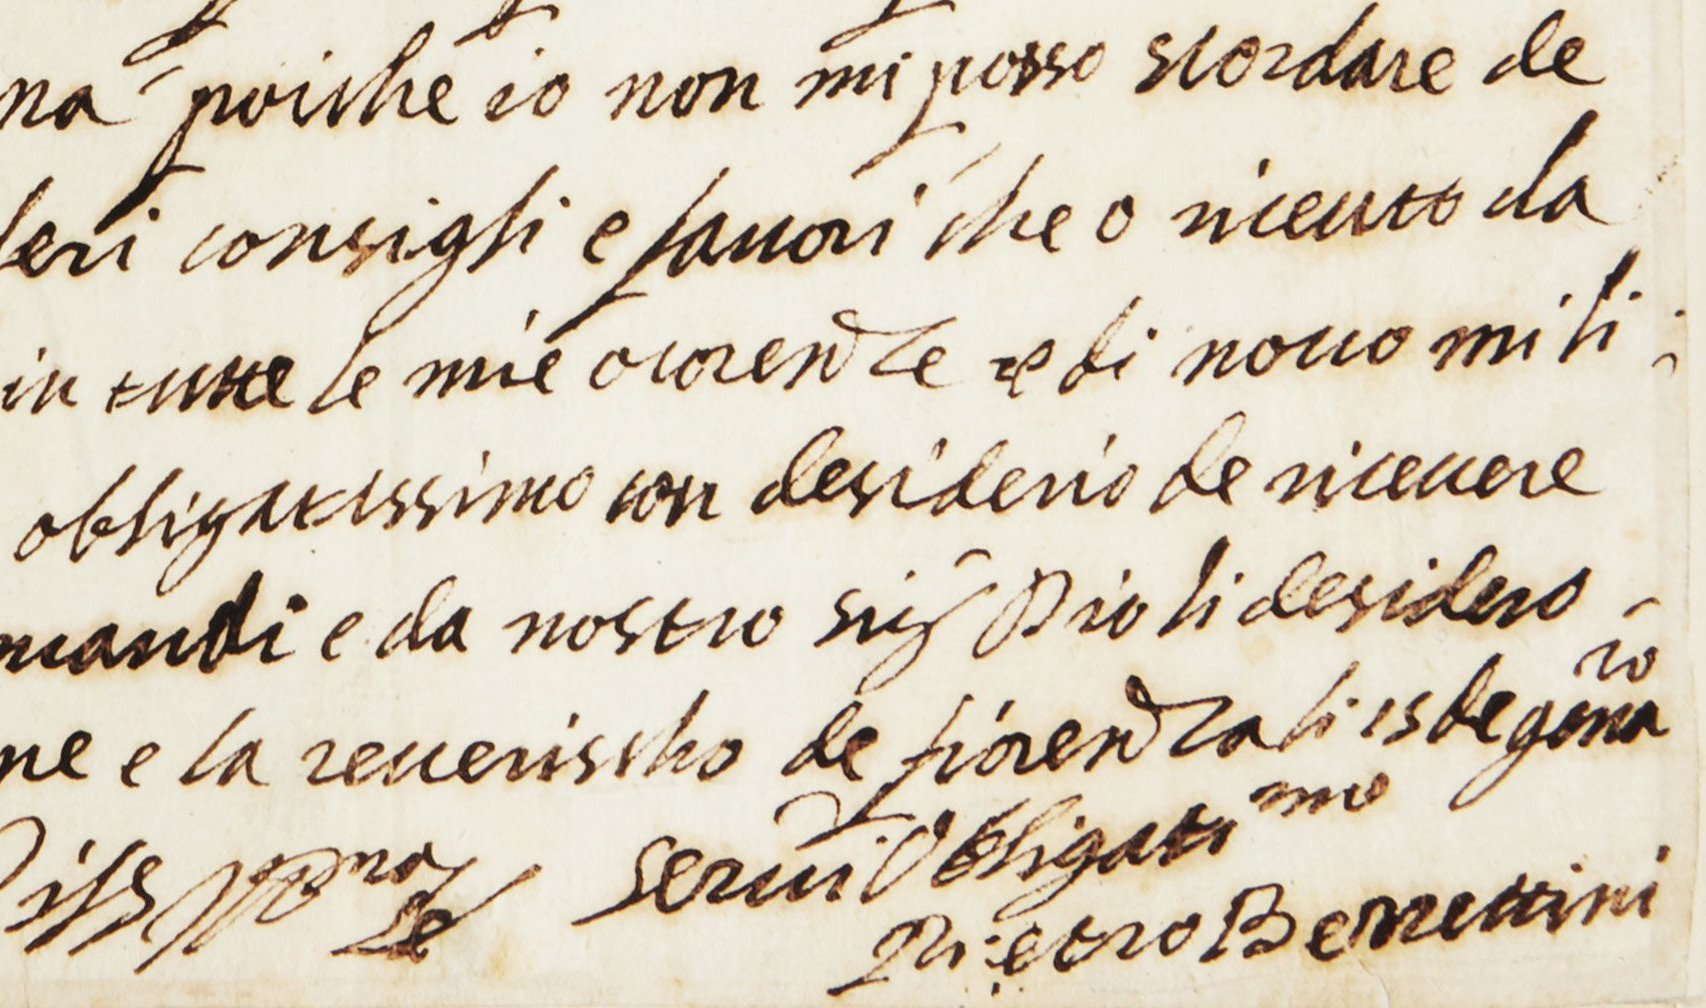 na poiche io non mi posso scordare de
leri consigli e fauori che o riceuto da
in tutte le mie ocorenze e di nouo mi li
obligatissimo con desiderio de riceuere
mandi e da nostro sig Dio li desidero
ne e la reuerischo de fiorenza li 15 de genaro
Serui Obligatimo
Pietro Berrettini